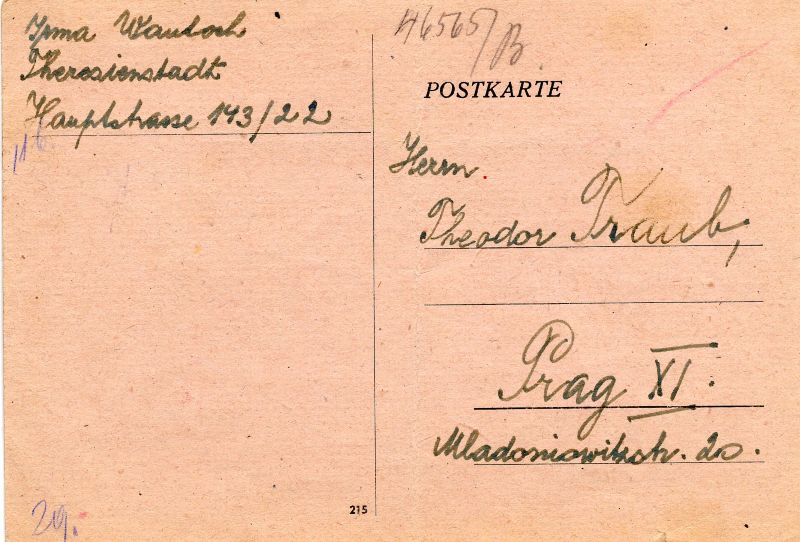 Irma Wantoch
Theresienstadt
Hauptstrasse 143/22
46565/B
POSTKARTE
Herrn
Theodor Traub,
Prag XI.
Mladoniowitzstr. 20.
29.
215